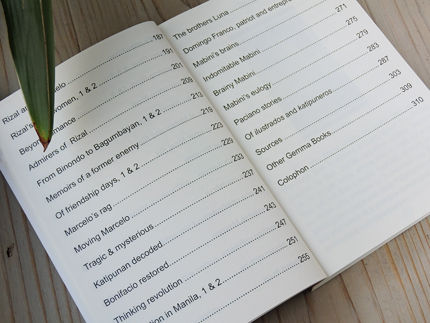 Rizal 187
Rizal's women, 1 & 2 191
Beyond romance 201
Admirers of Rizal 209
From Binondo to Bagumbayan, 1 & 2 213
Memoirs of a former enemy 219
Of friendship days, 1 & 2 223
Marcelo's rag 229
Moving Marcelo 233
Tragic & mysterious 237
Katipunan decoded 241
Bonifacio restored 243
Thinking revolution 247
in Manila, 1 & 2 251
255
The brothers Luna
Domingo Franco, patriot and
Mabini's brains
Indomitable Mabini 271
Brainy Mabini 275
Mabini's eulogy 279
Paciano stories 283
Of ilustrados and katipuneros 287
Sources 303
Other Gemma Books 309
Colophon 310